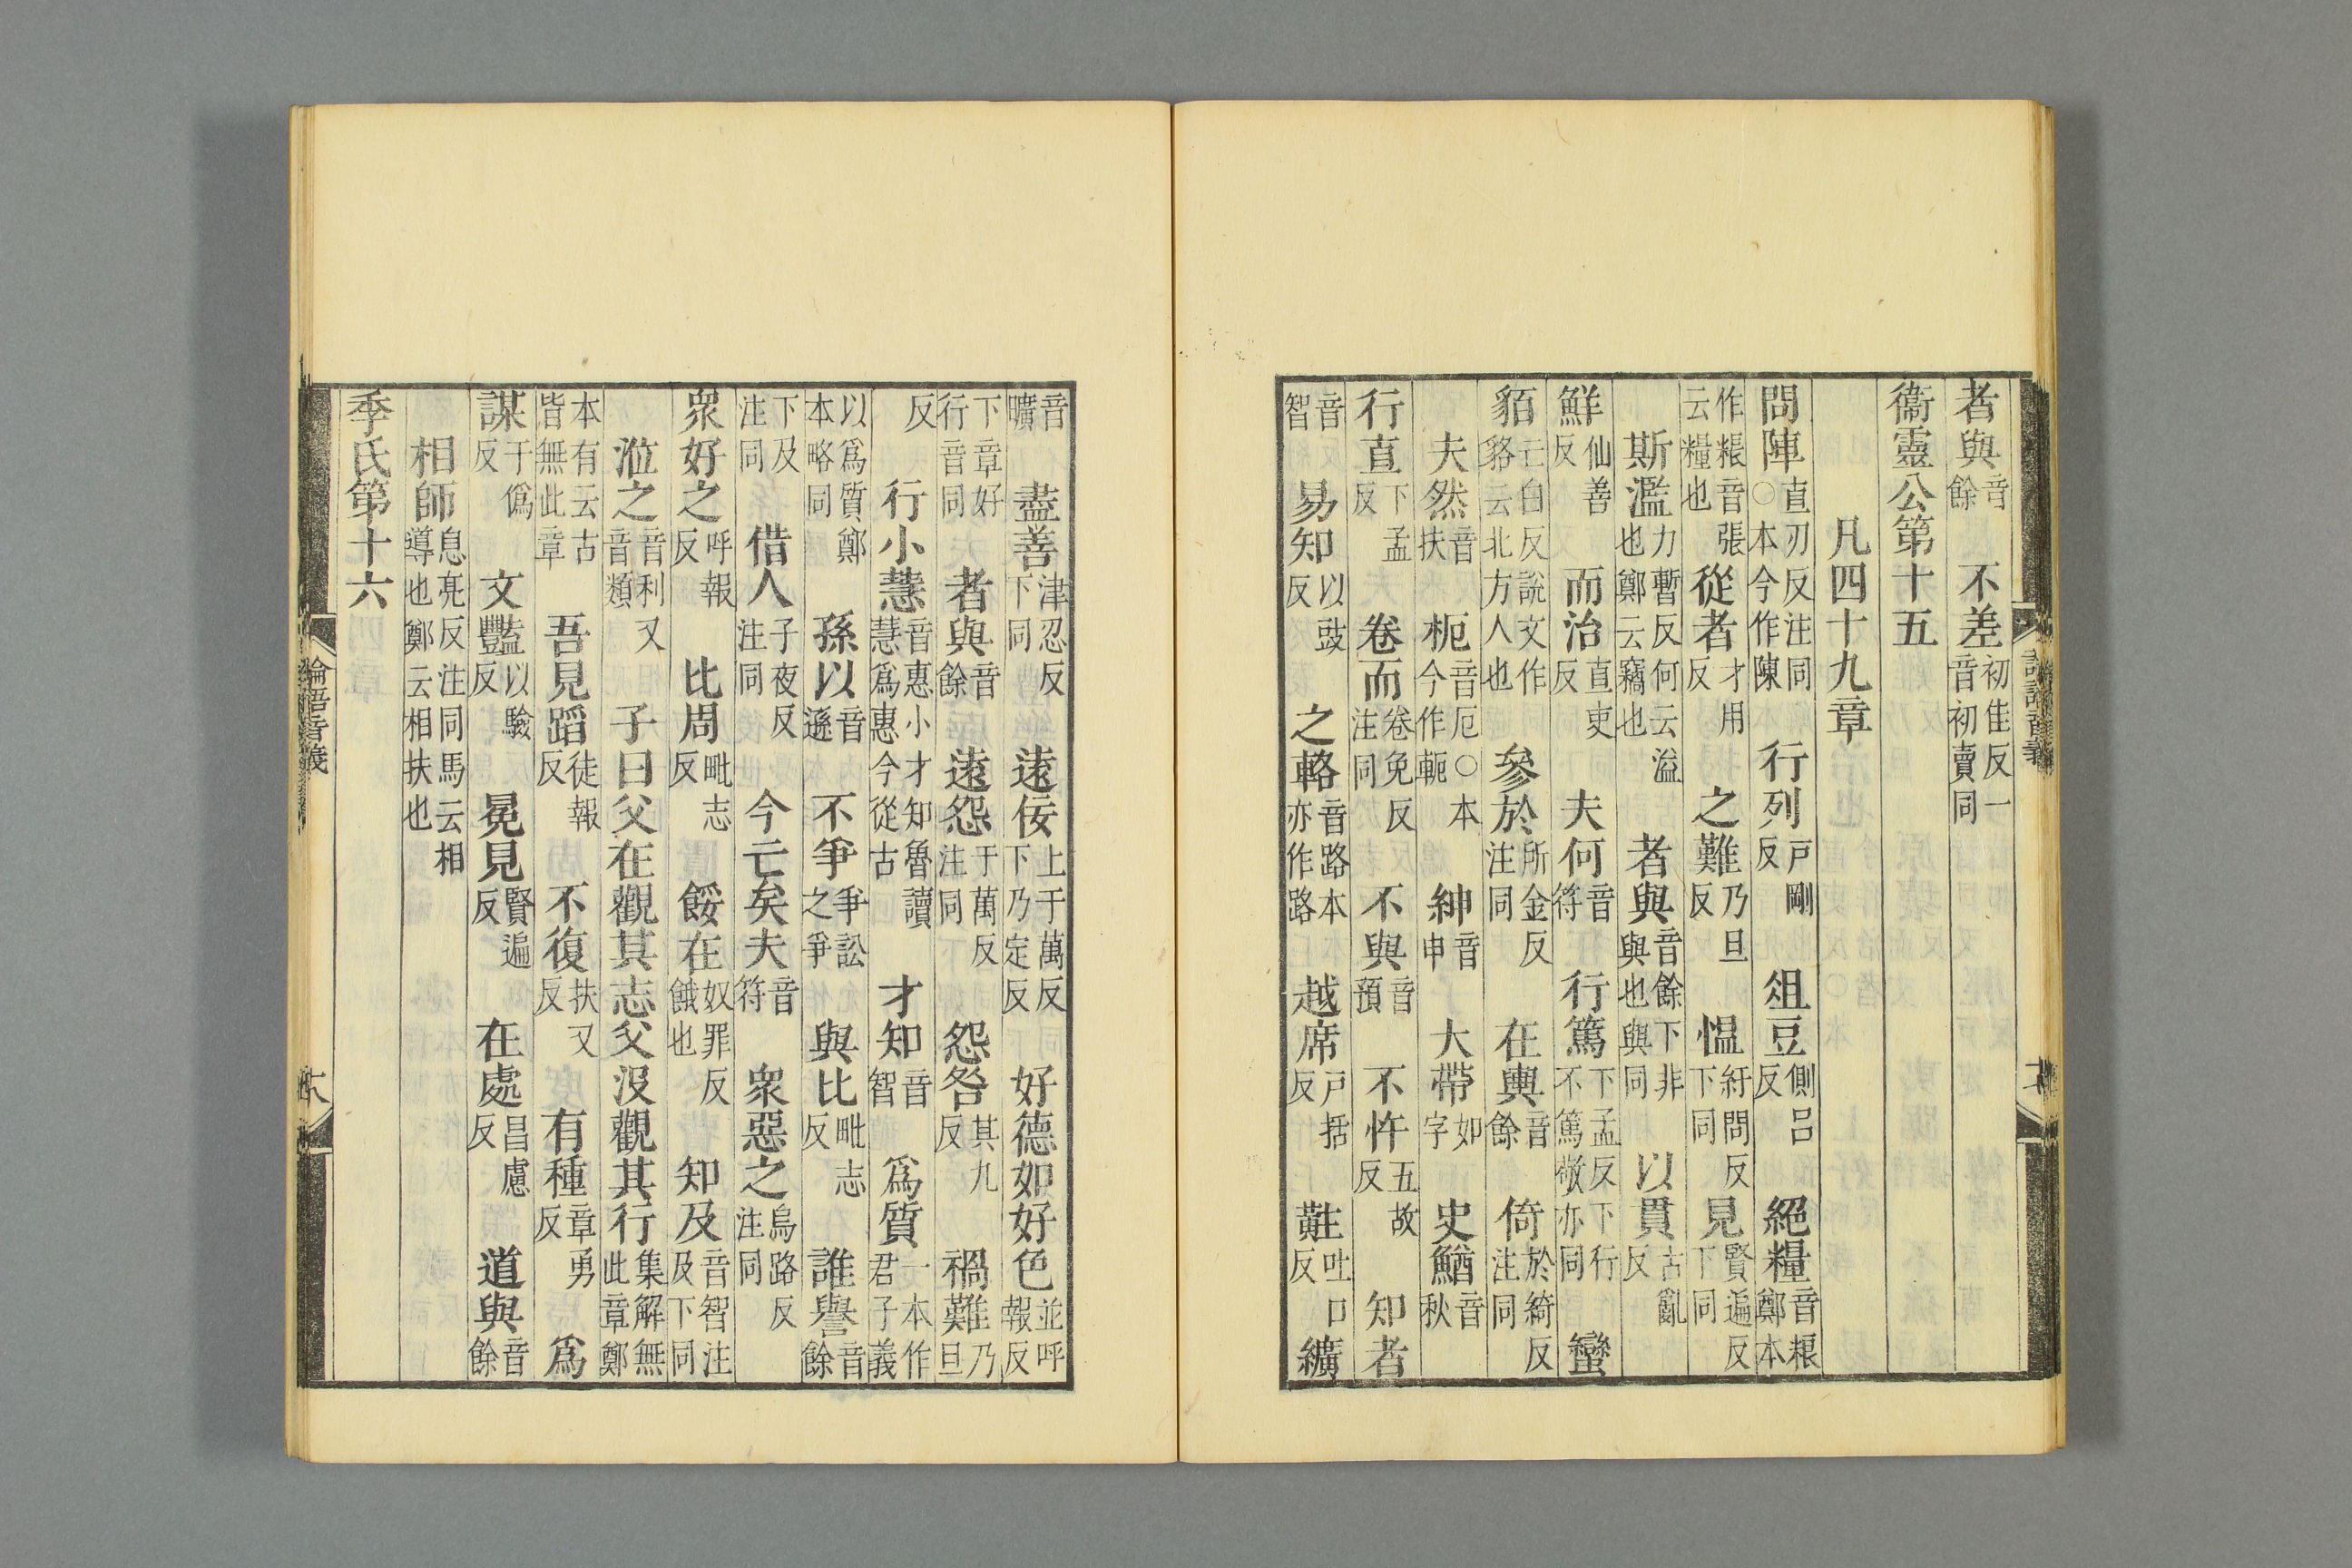 者與音餘　不差初佳反一音初賣同
衞靈公第十五
凡四十九章
問陣直刃反注同○本今作陳　行列戸剛反　俎豆側呂反　絕糧音粮鄭本
作粻音張云糧也　從者才用反　之難乃旦反　慍紆問反下同　見賢遍反下同
斯濫力暫反何云溢也鄭云竊也　者與音餘下非與也與同　以貫古亂反
鮮仙善反　而治直吏反　夫何音符　行篤下孟反下行不篤敬亦同　蠻
貊亡白反說文作貉云北方人也　參於所金反注同　在輿音餘　倚於綺反注同
夫然音扶　枙音厄○本今作軛　紳音申　大帶如字　史鰌音秋
行直下孟反　卷而卷免反注同　不與音預　不忤五故反　知者
音智　易知以豉反　之輅音路本亦作路　越席戸括反　黈吐口反　纊
音曠　盡善津忍反下同　遠佞上于萬反下乃定反　好德如好色並呼報反
下章好行音同　者與音餘　遠怨于萬反注同　怨咎其九反　禍難乃旦
反　行小慧音惠小才知魯讀慧爲惠今從古　才知音智　爲質一本作君子義
以爲質鄭本略同　孫以音遜　不爭爭訟之爭　與比毗志反　誰譽音餘
下及注同　借人子夜反注同　今亡矣夫音符　衆惡之烏路反注同
衆好之呼報反　比周毗志反　餒在奴罪反餓也　知及音智注及下同
涖之音利又音類　子曰父在觀其志父沒觀其行集解無此章鄭
本有云古皆無此章　吾見蹈徒報反　不復扶又反　有種章勇反　爲
謀于僞反　文豔以驗反　冕見賢遍反　在處昌慮反　道與音餘
相師息亮反注同馬云相導也鄭云相扶也
季氏第十六
論語音義